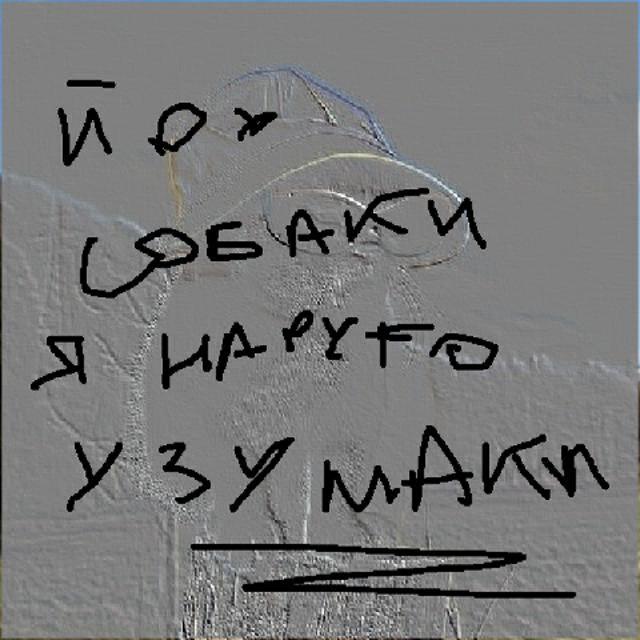 ЙОУ
СОБАКИ
Я НАРУТО
УЗУМАКИ